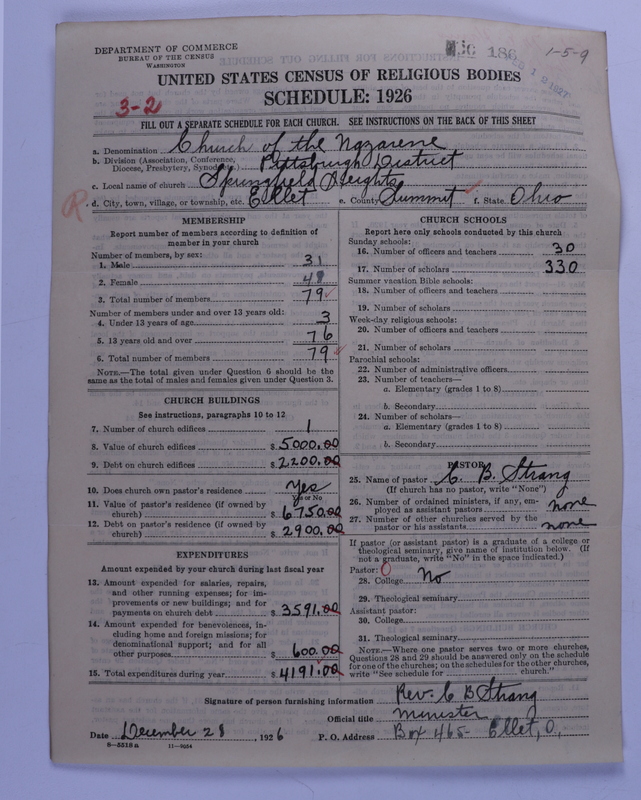 DEPARTMENT OF COMMERCE
BUREAU OF THE CENSUS
WASHINGTON
186
1-5-9
1 2 1927
UNITED STATES CENSUS OF RELIGIOUS BODIES
SCHEDULE: 1926
3-2
FILL OUT A SEPARATE SCHEDULE FOR EACH CHURCH. SEE INSTRUCTIONS ON THE BACK OF THIS SHEET
a. Denomination Church of the Nazarene
b. Division (Association, Conference, Diocese, Presbytery, Synod, etc.) Pittsburgh District
c. Local name of church Springfield Heights
R. d. City, town, village, or township, etc. Ellet e. County Summit f. State Ohio
MEMBERSHIP
Report number of members according to definition of
member in your church
Number of members, by sex:
1. Male 31
2. Female 48
3. Total number of members 79
Number of members under and over 13 years old:
4. Under 13 years of age 3
5. 13 years old and over 76
6. Total number of members 79
NOTE.—The total given under Question 6 should be the
same as the total of males and females given under Question 3.
CHURCH BUILDINGS
See instructions, paragraphs 10 to 12
7. Number of church edifices 1
8. Value of church edifices $ 5000.00
9. Debt on church edifices $ 2200.00
10. Does church own pastor's residence Yes
Yes or No
11. Value of pastor's residence (if owned by
church) $ 6750.00
12. Debt on pastor's residence (if owned by
church) $ 2900.00
EXPENDITURES
Amount expended by your church during last fiscal year
13. Amount expended for salaries, repairs,
and other running expenses; for im-
provements or new buildings; and for
payments on church debt $ 3591.00
14. Amount expended for benevolences, in-
cluding home and foreign missions; for
denominational support; and for all
other purposes $ 600.00
15. Total expenditures during year $ 4191.00
CHURCH SCHOOLS
Report here only schools conducted by this church
Sunday schools:
16. Number of officers and teachers 30
17. Number of scholars 330
Summer vacation Bible schools:
18. Number of officers and teachers
19. Number of scholars
Week-day religious schools:
20. Number of officers and teachers
21. Number of scholars
Parochial schools:
22. Number of administrative officers
23. Number of teachers—
a. Elementary (grades 1 to 8)
b. Secondary
24. Number of scholars—
a. Elementary (grades 1 to 8)
b. Secondary
PASTOR
25. Name of pastor C. B. Strang
(If church has no pastor, write "None")
26. Number of ordained ministers, if any, em-
ployed as assistant pastors none
27. Number of other churches served by the
pastor or his assistants none
If pastor (or assistant pastor) is a graduate of a college or
theological seminary, give name of institution below. (If
not a graduate, write "No" in the space indicated.)
Pastor: 0
28. College No
29. Theological seminary
Assistant pastor:
30. College
31. Theological seminary
NOTE.—Where one pastor serves two or more churches,
Questions 28 and 29 should be answered only on the schedule
for one of the churches; on the schedules for the other churches,
write "See schedule for church."
Signature of person furnishing information Rev. C B Strang
Official title Minister
Date December 28, 1926 P. O. Address Box 465- Ellet, O.
8-5518a 11-9054